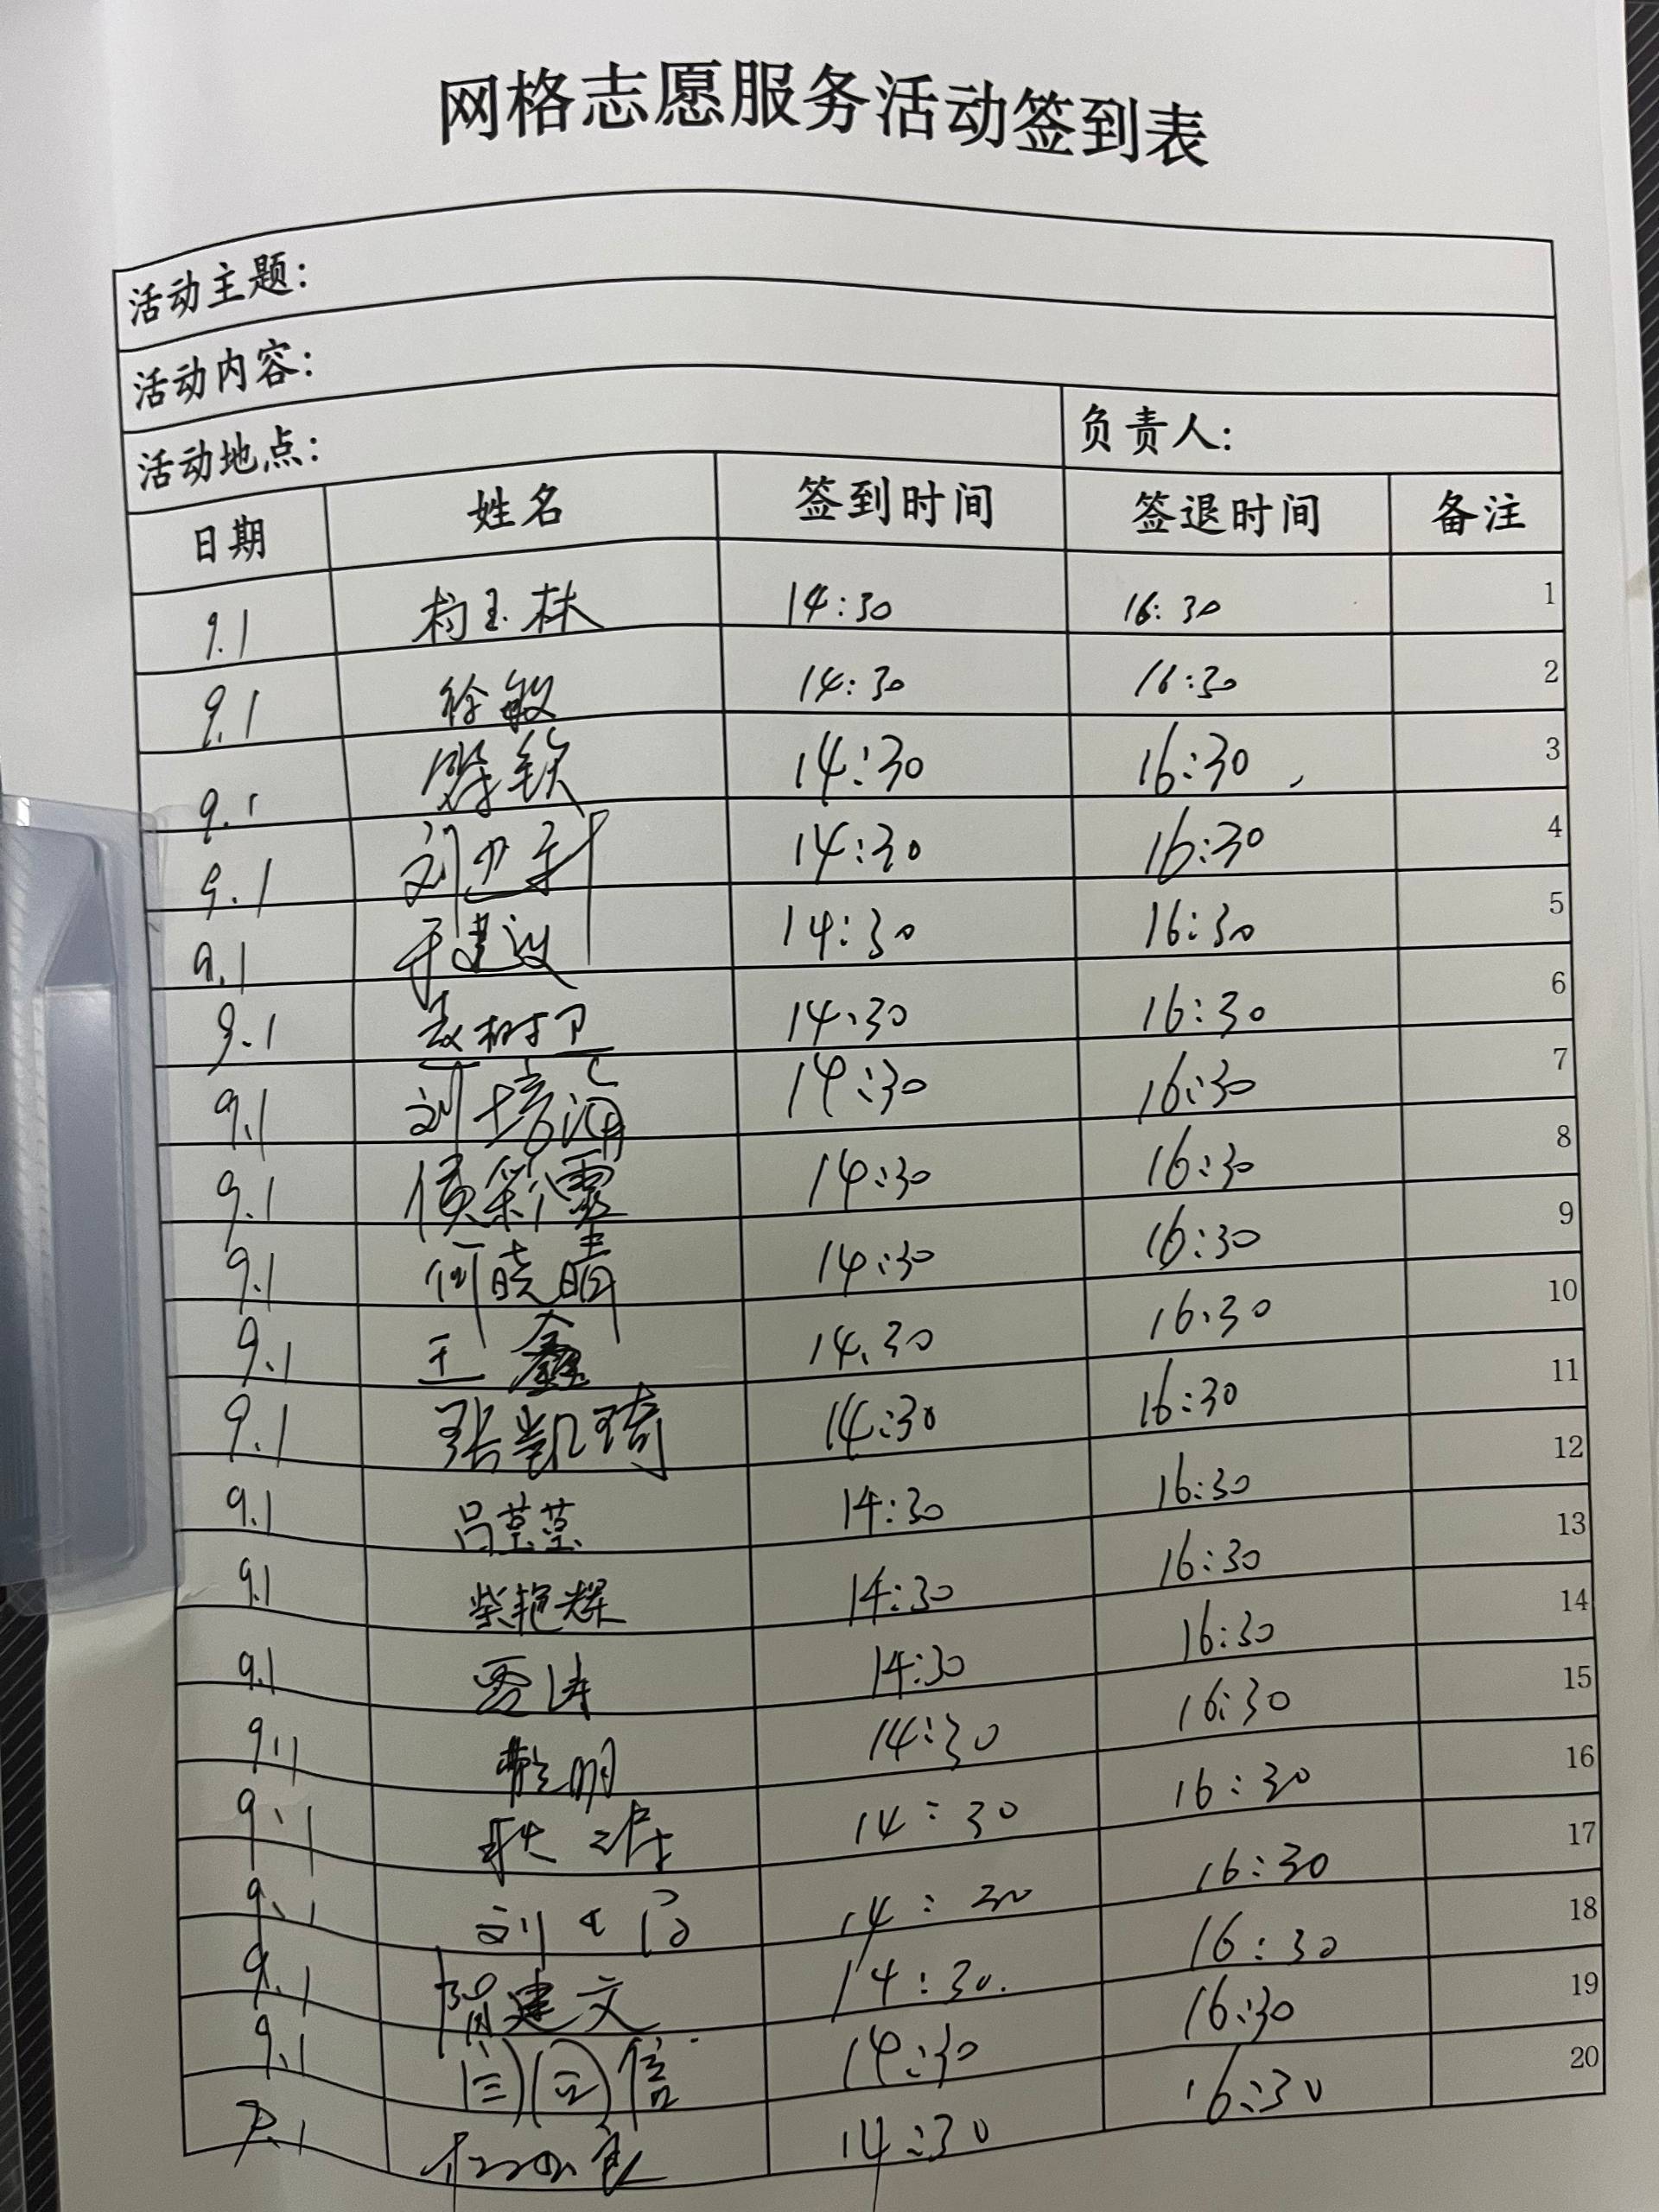 网格志愿服务活动签到表
活动主题：
活动内容：
活动地点： 负责人：
日期 姓名 签到时间 签退时间 备注
9.1 林 14:30 16:30 1
9.1 徐敏 14:30 16:30 2
9.1 14:30 16:30 3
9.1 刘 14:30 16:30 4
9.1 于建设 14:30 16:30 5
9.1 袁树卫 14:30 16:30 6
9.1 刘培 14:30 16:30 7
9.1 侯彩霞 14:30 16:30 8
9.1 何晓晴 14:30 16:30 9
9.1 王鑫 14.30 16.30 10
9.1 张凯琦 14:30 16:30 11
9.1 吕莹莹 14:30 16:30 12
9.1 柴艳辉 14:30 16:30 13
9.1 贾涛 14:30 16:30 14
9.1 明 14:30 16:30 15
9.1 14:30 16:30 16
9.1 刘 14:30 16:30 17
9.1 贺建文 14:30. 16:30 18
9.1 信 14:30 16:30 19
9.1 14:30 16:30 20